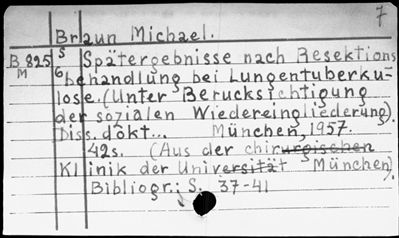 7
Braun Michael.
B 825 S Spätergebnisse nach Resektions
M G behandlung bei Lungentuberku-
lose. (Unter Berucksichtigung
der sozialen Wiedereingliederung).
Diss. dokt... München, 1957.
42s. (Aus der chirurgischen
Klinik der Universität München).
Bibliogr.: S. 37-41